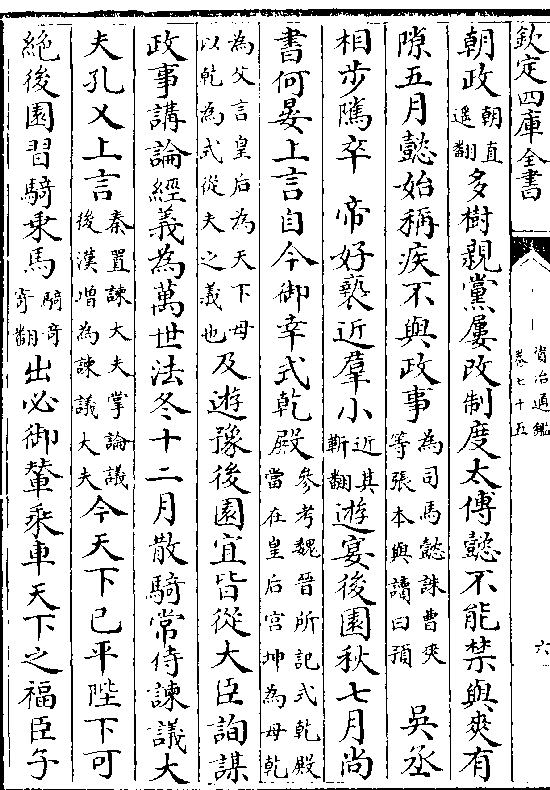 欽定四庫全書
資治通鑑
卷七十五
六
朝政朝直遥翻多樹親黨屢改制度太傅懿不能禁與爽有
隙五月懿始稱疾不與政事為司馬懿誅曹爽等張本與讀曰預 吳丞
相步隲卒 帝好䙝近羣小近其靳翻遊宴後園秋七月尚
書何晏上言自今御幸式乾殿參考魏晉所記式乾殿當在皇后宫坤為母乾
為父言皇后為天下母以乾為式從夫之義也及遊豫後園宜皆從大臣詢謀
政事講論經義為萬世法冬十二月散騎常侍諫議大
夫孔乂上言秦置諫大夫掌論議後漢增為諫議大夫今天下已平陛下可
絶後園習騎乘馬騎奇寄翻出必御輦乘車天下之福臣子